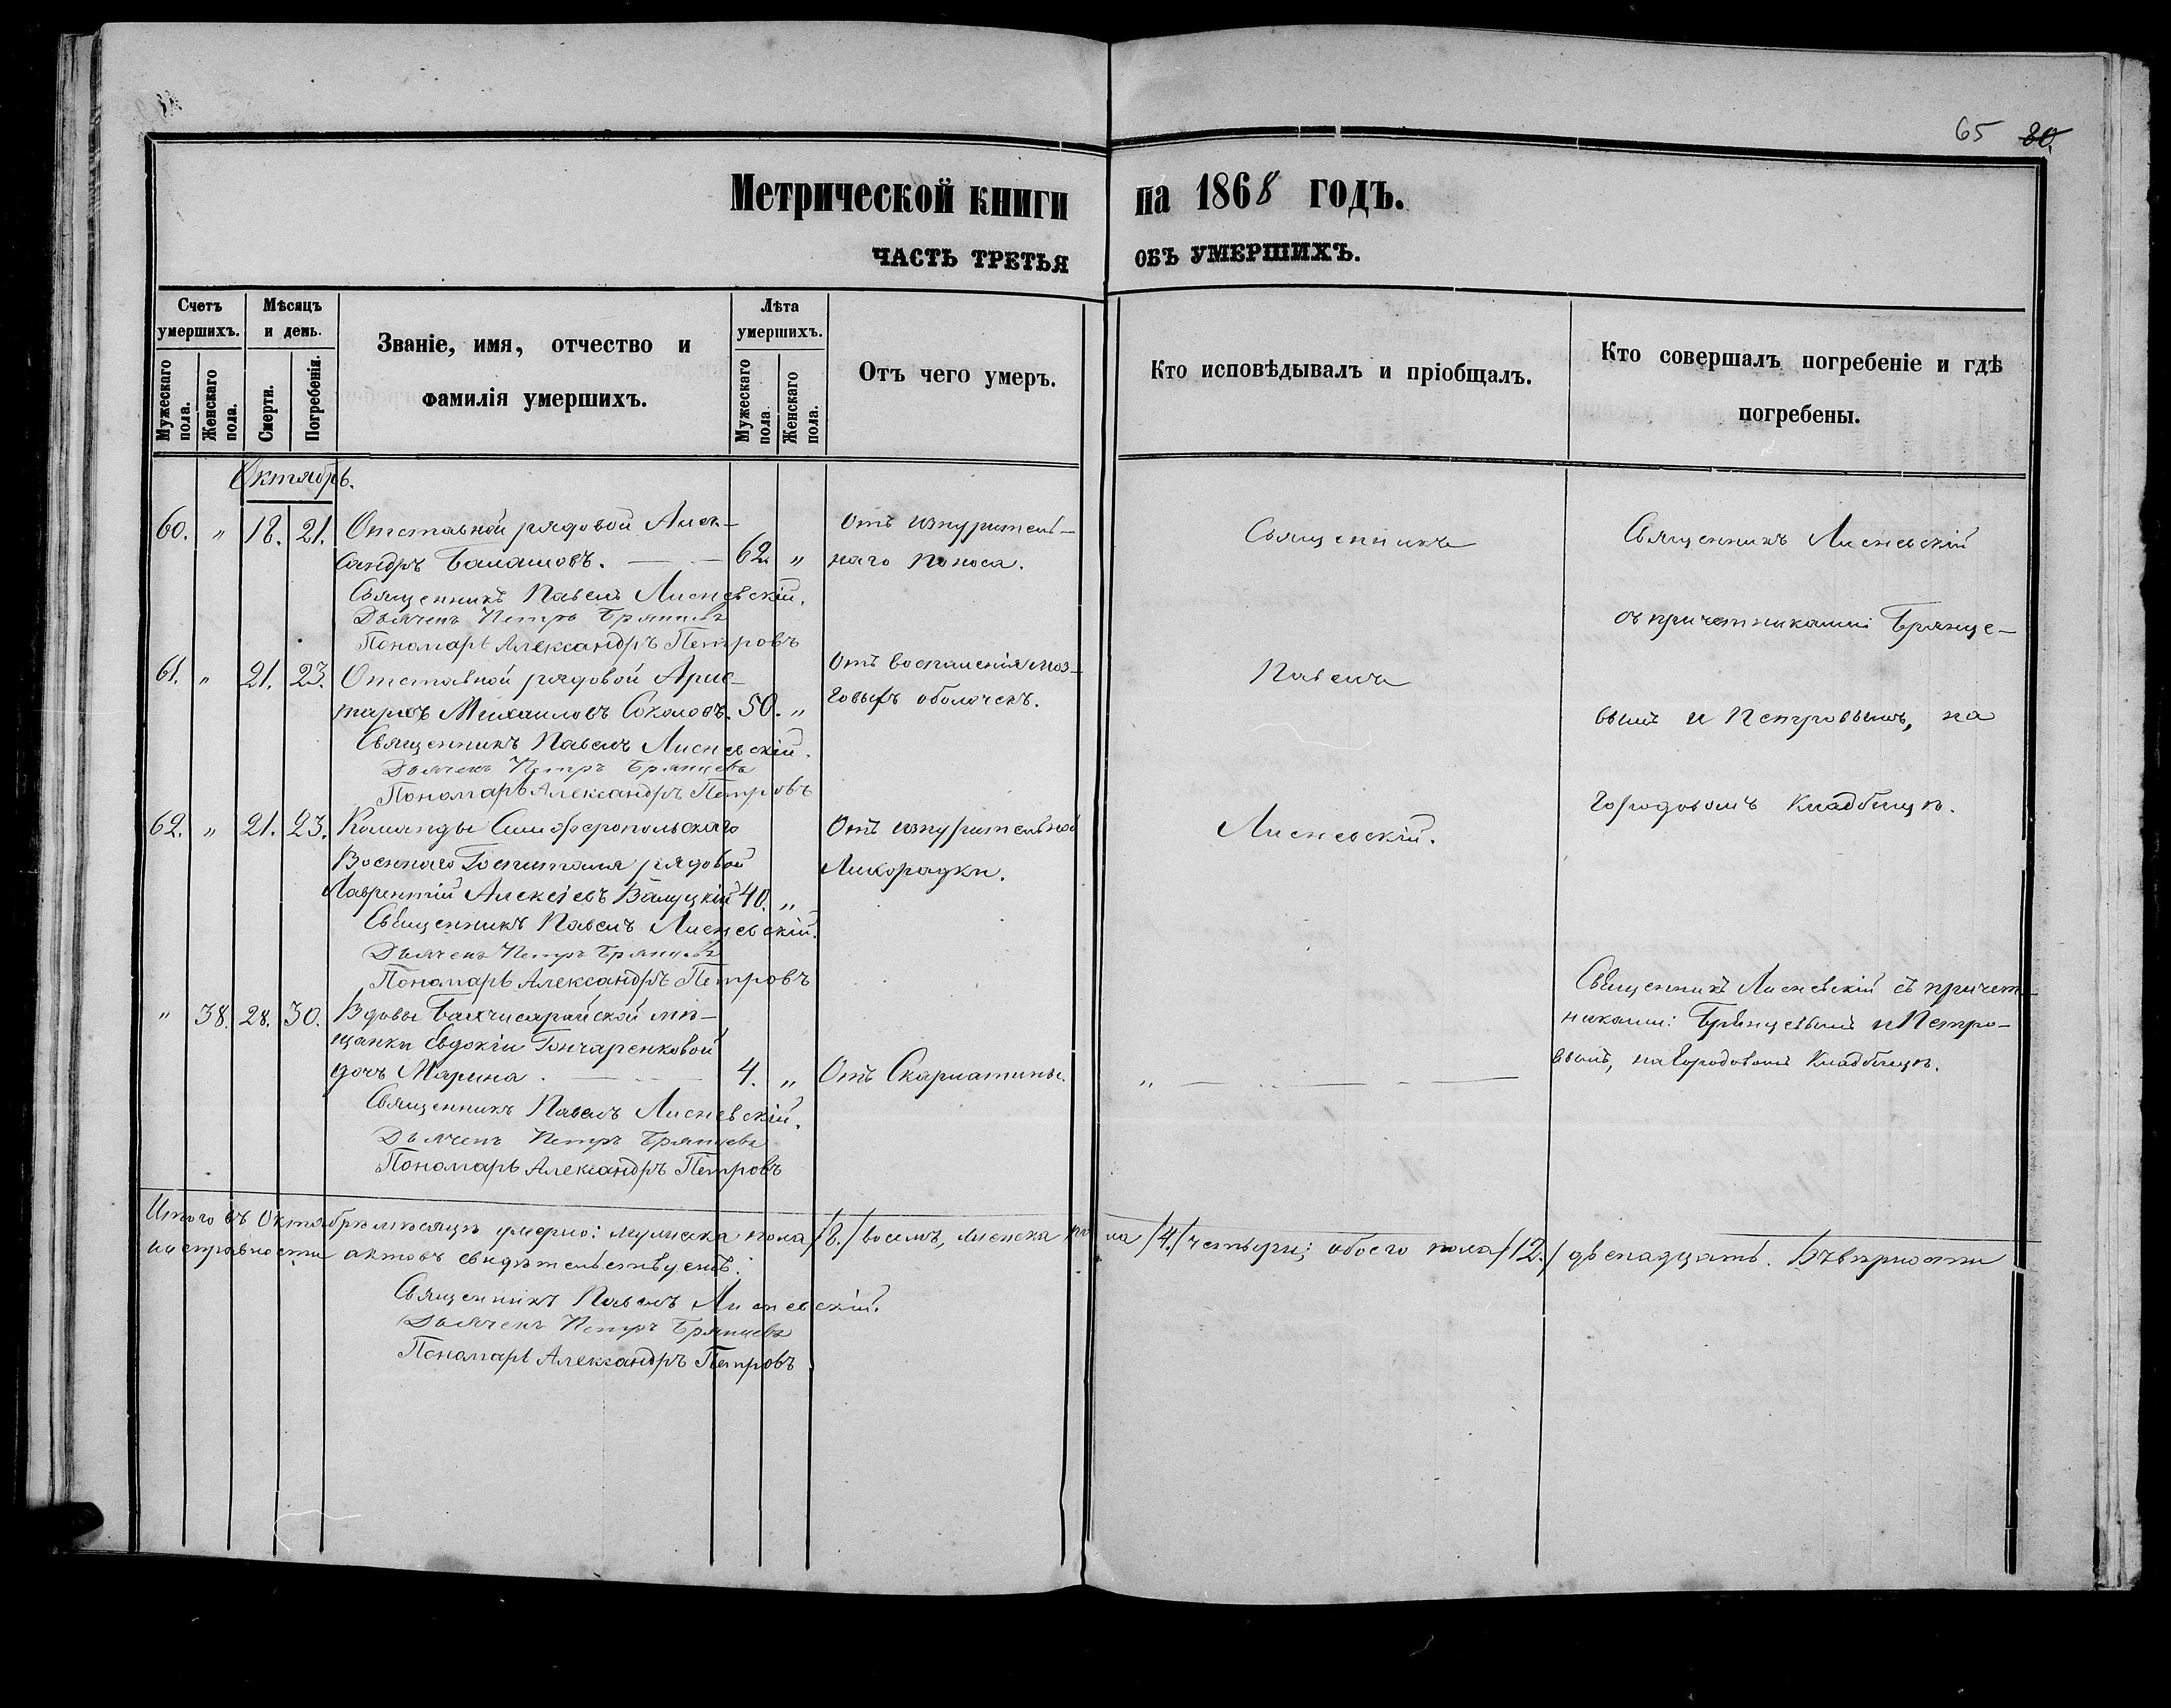 65 80.
Метрической книги на 1868 годъ.
ЧАСТЬ ТРЕТЬЯ ОБЪ УМЕРШИХЪ.
Счетъ умершихъ.
Мужескаго пола.
Женскаго пола.
Мѣсяцъ и день.
Смерти.
Погребенія.
Званіе, имя, отчество и фамилія умершихъ.
Лѣта умершихъ.
Мужескаго пола.
Женскаго пола.
Отъ чего умеръ.
Кто исповѣдывалъ и пріобщалъ.
Кто совершалъ погребеніе и гдѣ погребены.
Октябрь.
60. " 18. 21. Отставной рядовой Алек-
сандръ Балашовъ. 62. "
Отъ изнуритель-
наго поноса.
Священникъ Павелъ Лисневскій.
Дьячекъ Петръ Брянцевъ
Пономарь Александръ Петровъ
61. " 21. 23. Отставной рядовой Арис-
тархъ Михаиловъ Соколовъ. 50. "
Отъ воспаленія моз-
говыхъ оболочекъ.
Священникъ Павелъ Лисневскій.
Дьячекъ Петръ Брянцевъ
Пономарь Александръ Петровъ
62. " 21. 23. Команды Симферопольскаго
Военнаго Госпиталя рядовой
Лаврентій Алексѣевъ 40. "
Отъ изнурительной
Лихорадки.
Священникъ Павелъ Лисневскій.
Дьячекъ Петръ Брянцевъ
Пономарь Александръ Петровъ
Священникъ
Павелъ
Лисневскій.
Священникъ Лисневскій
съ причетниками: Брянце-
вымъ и Петровымъ, на
Городовомъ Кладбищѣ.
" 38. 28. 30. Вдовы Бахчисарайской мѣ-
щанки Евдокіи Гончаренковой
дочь Марина. 4. "
Отъ Скарлатины.
"
Священникъ Лисневскій съ причет-
никами: Брянцевымъ и Петро-
вымъ, на Городовомъ Кладбищѣ.
Священникъ Павелъ Лисневскій.
Дьячекъ Петръ Брянцевъ
Пономарь Александръ Петровъ
Итого въ Октябрѣ мѣсяцѣ умерло: мужеска пола /8./ восемь, женска пола /4./ четыри; обоего пола /12./ двенадцать. Въ вѣрности
исправности актовъ свидѣтельствуемъ:
Священникъ Павелъ Лисневскій.
Дьячекъ Петръ Брянцевъ
Пономарь Александръ Петровъ